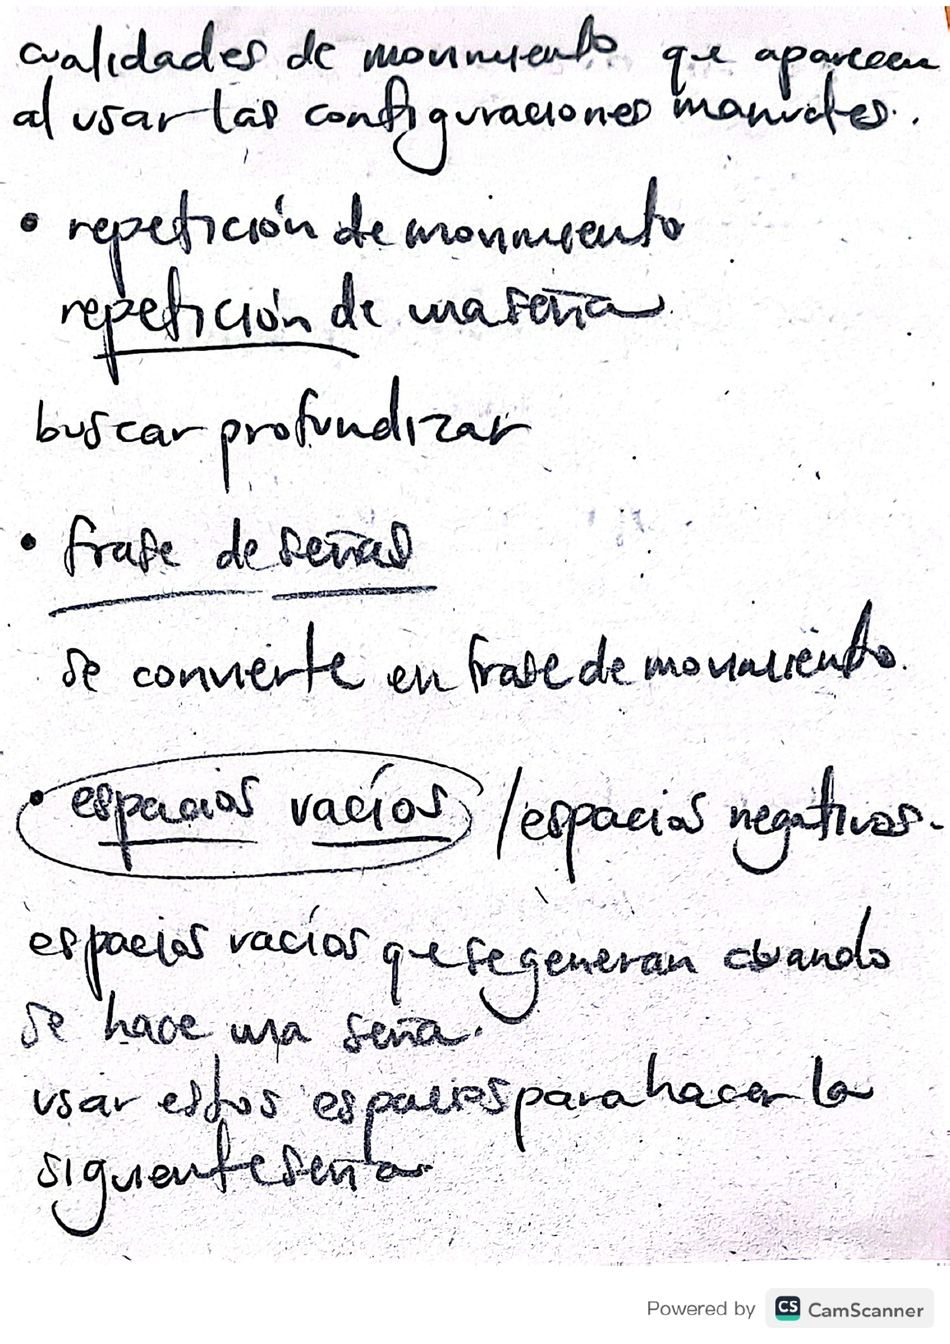 cualidades de movimiento que aparecen
al usar las configuraciones manuales.
• repetición de movimiento
repetición de una seña
buscar profundizar
• frase de señas
se convierte en frase de movimiento.
• espacios vacíos / espacios negativos.
espacios vacíos que se generan cuando
se hace una seña.
usar estos espacios para hacer la
siguiente seña
Powered by CS CamScanner